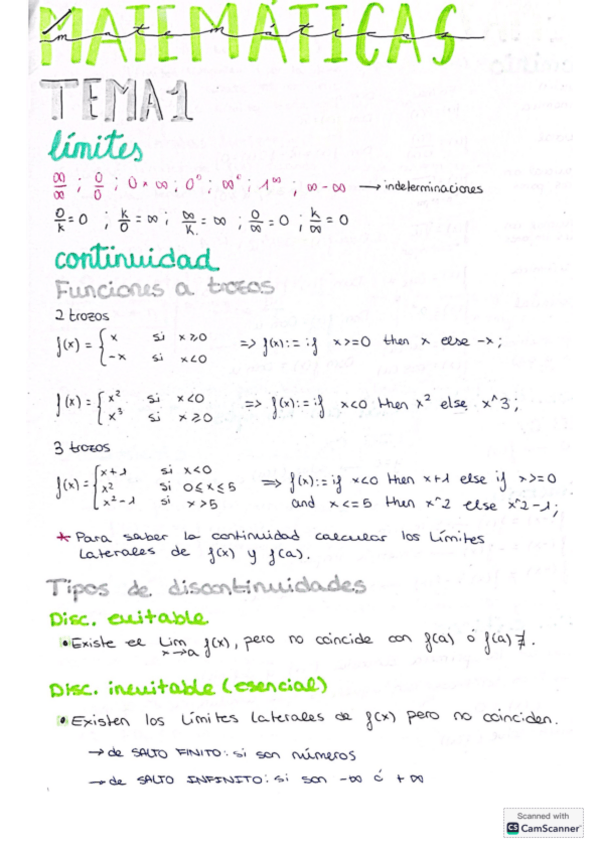 MATEMÁTICAS
matemáticas
TEMA 1
límites
∞/∞ ; 0/0 ; 0 × ∞ ; 0⁰ ; ∞⁰ ; 1^∞ ; ∞ - ∞ → indeterminaciones
0/k = 0 ; k/0 = ∞ ; ∞/k = ∞ ; 0/∞ = 0 ; k/∞ = 0
continuidad
Funciones a trozos
2 trozos
f(x) = { x si x ≥ 0 => f(x):= if x>=0 then x else -x;
-x si x<0
f(x) = { x² si x<0 => f(x):= if x<0 then x² else x^3;
x³ si x ≥ 0
3 trozos
f(x) = { x+1 si x<0 => f(x):= if x<0 then x+1 else if x>=0
x² si 0 ≤ x ≤ 5 and x<=5 then x^2 else x^2-1;
x²-1 si x>5
* Para saber la continuidad calcular los límites
laterales de f(x) y f(a).
Tipos de discontinuidades
Disc. evitable
• Existe el lim x→a f(x), pero no coincide con f(a) ó f(a) ∄.
Disc. inevitable (esencial)
• Existen los límites laterales de f(x) pero no coinciden.
→ de SALTO FINITO: si son números
→ de SALTO INFINITO: si son -∞ ó +∞
Scanned with
CS CamScanner